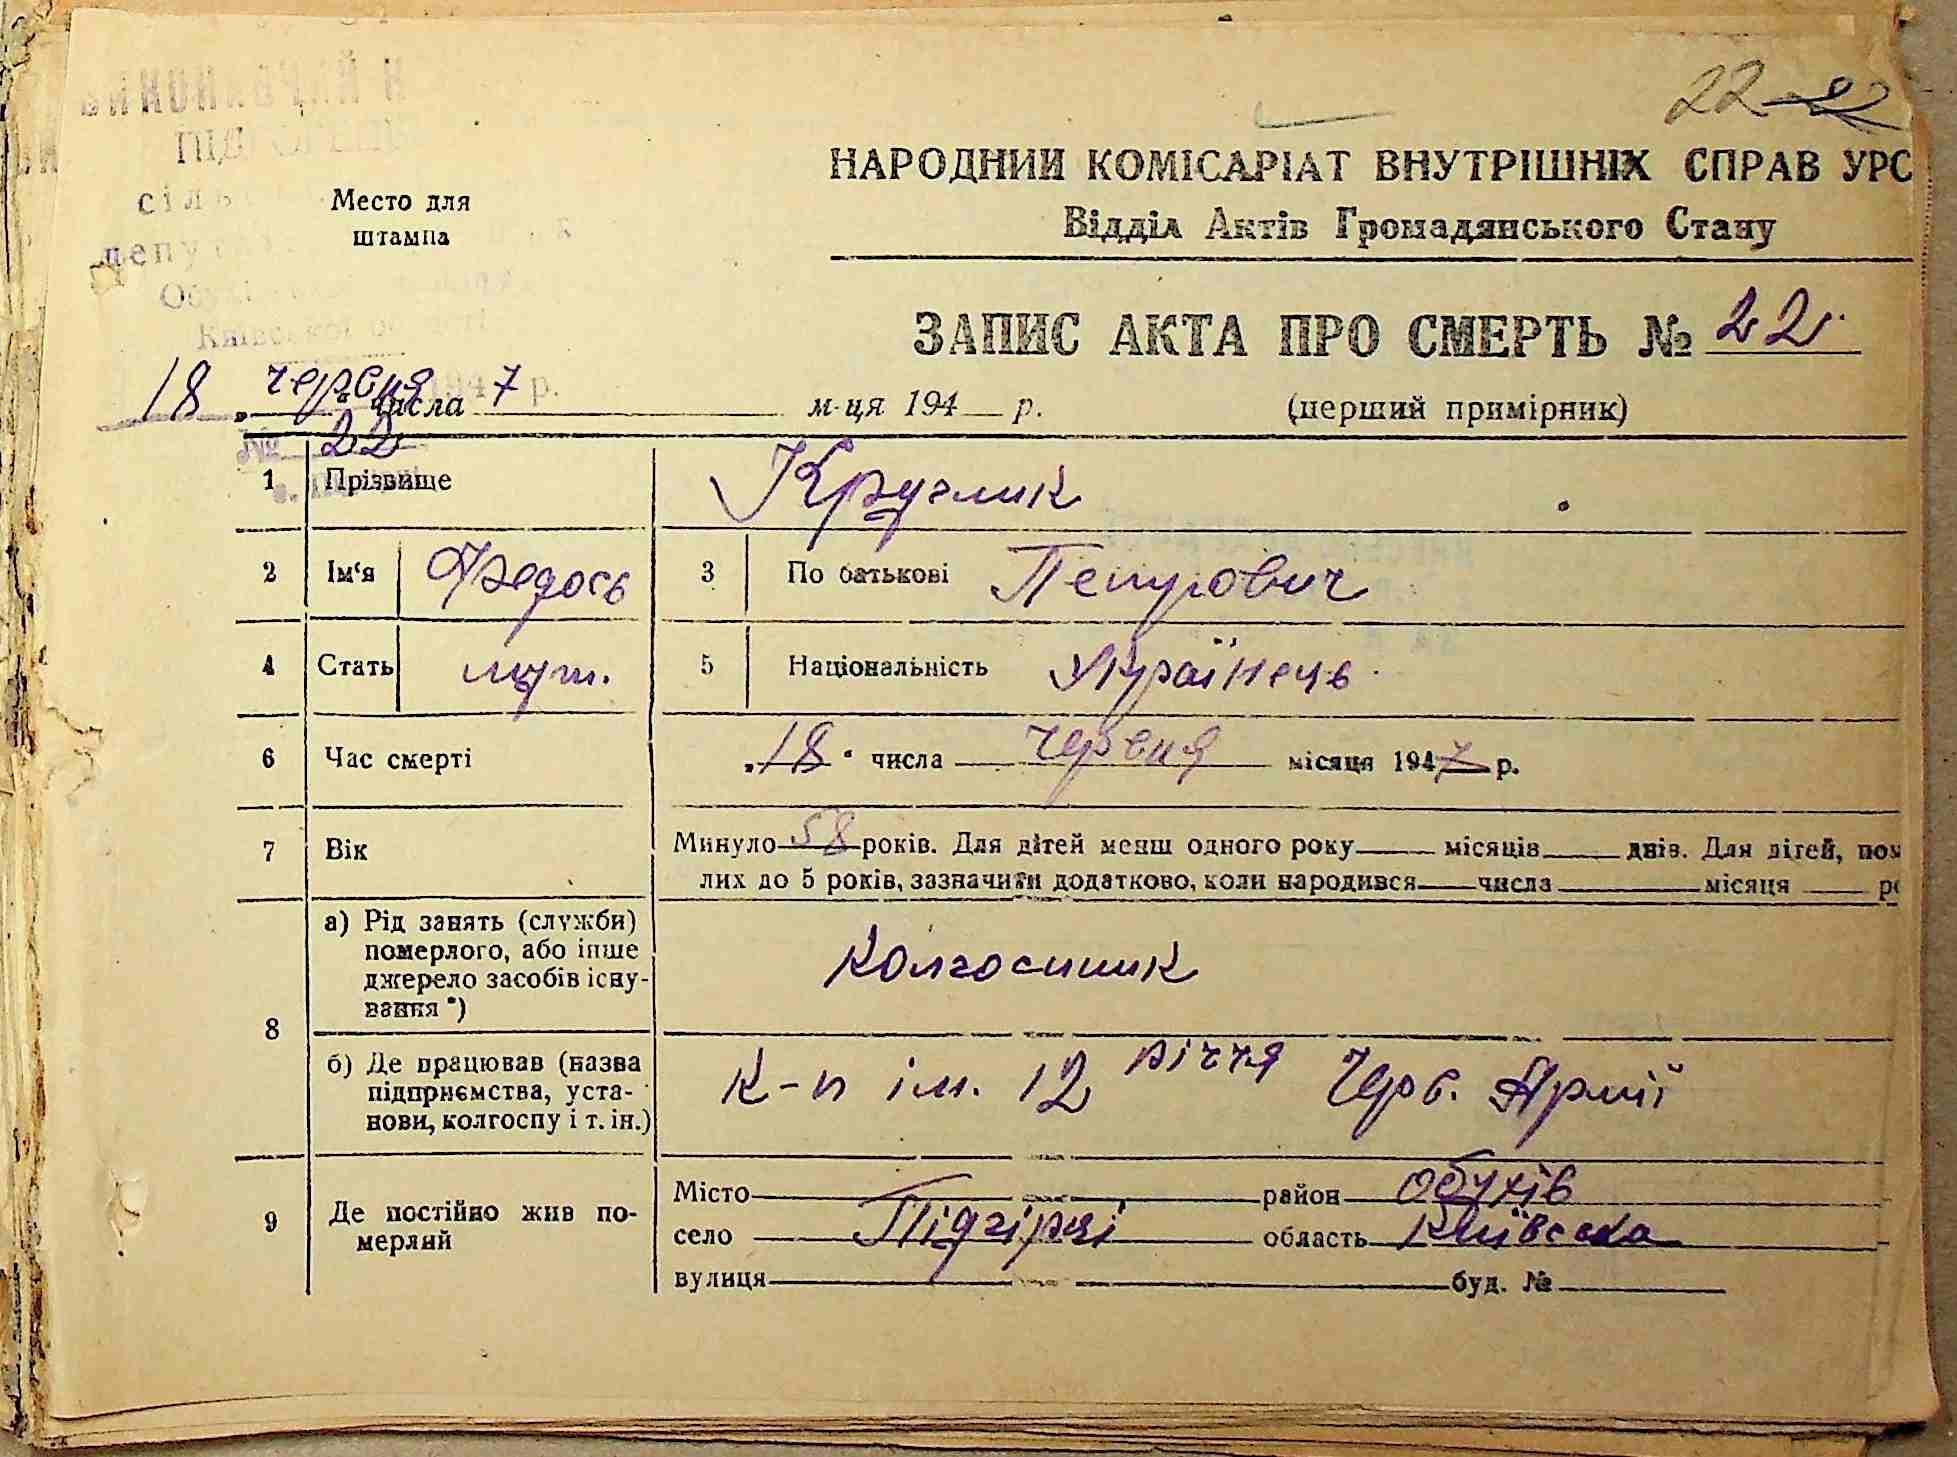 22 22
НАРОДНИЙ КОМІСАРІАТ ВНУТРІШНІХ СПРАВ УРС
Відділ Актів Громадянського Стану
Место для
штампа
сіль
депу
Київської області
ЗАПИС АКТА ПРО СМЕРТЬ № 22
18 „червня“ числа 7 м-ця 194 р.
(перший примірник)
№ 22
1 Прізвище Круглик
2 Ім'я Федось 3 По батькові Петрович
4 Стать муж. 5 Національність Українець
6 Час смерті „18“ числа червня місяця 1947 р.
7 Вік Минуло 58 років. Для дітей менш одного року місяців днів. Для дітей, пом
лих до 5 років, зазначити додатково, коли народився числа місяця ро
8 а) Рід занять (служби)
померлого, або інше
джерело засобів існу-
вання *) Колгоспник
б) Де працював (назва
підприємства, уста-
нови, колгоспу і т. ін.) К-п ім. 12 річчя Черв. Армії
9 Де постійно жив по-
мерлий
Місто район Обухів
село Підгірці область Київська
вулиця буд. №